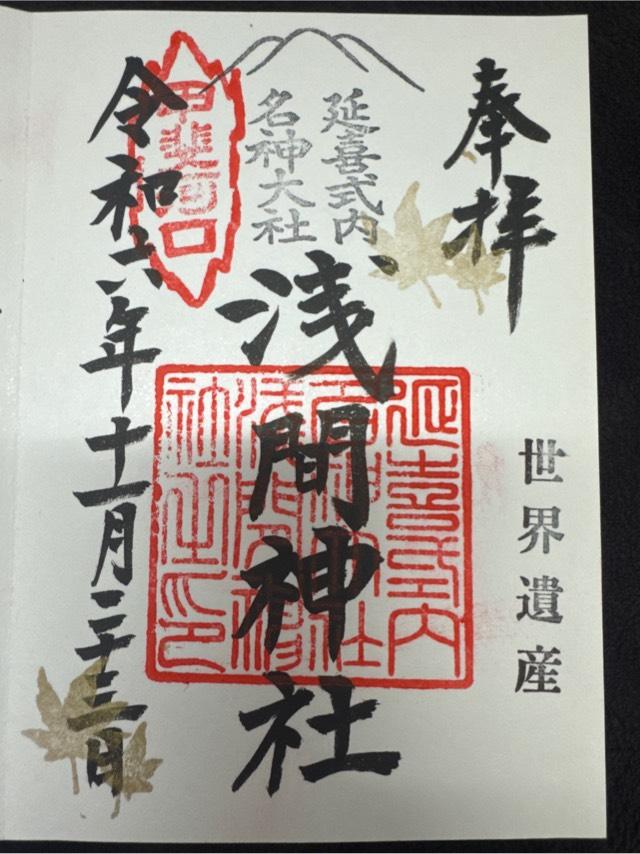 奉拝
世界遺産
延喜式内
名神大社
浅間神社
延喜式内
名神大社
浅間神
社之印
甲斐河口
令和六年十一月二十三日